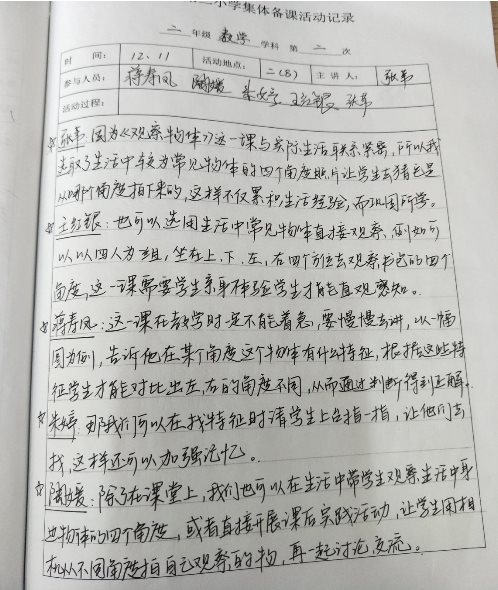 小学集体备课活动记录
二 年级 数学 学科 第 二 次
时 间： 12、11 活动地点： 二（8） 主 讲 人： 张苇
参与人员： 蒋寿凤 陶媛 朱婷 王红银 张苇
活动过程：
☆张苇：因为《观察物体》这一课与实际生活联系紧密，所以我
选取了生活中较为常见物体的四个角度照片让学生去猜它是
从哪个角度拍下来的，这样不仅累积生活经验，而巩固所学。
☆王红银：也可以选用生活中常见物体直接观察，例如可
以以四人为一组，坐在上、下、左、右四个方位去观察书包的四个
角度，这一课需要学生亲身体验学生才能直观感知。
☆蒋寿凤：这一课在教学时一定不能着急，要慢慢去讲，以一幅
图为例，告诉他在某个角度这个物体有什么特征，根据这些特
征学生才能对比出左、右的角度不同，从而通过判断得到正解。
☆朱婷：那我们可以在找特征时请学生上台指一指，让他们去
找，这样还可以加强记忆。
☆陶媛：除了在课堂上，我们也可以在生活中带学生观察生活中身
边物体的四个角度，或者直接开展课后实践活动，让学生用相
机从不同角度拍自己观察的物，再一起讨论交流。